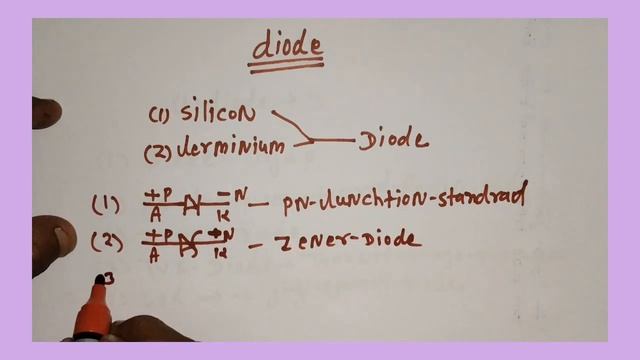 diode
(1) silicon
(2) Jerminium — Diode
(1) +P -N — PN-Junchtion-standrad
A K
(2) +P +N — Zener-Diode
A K
3